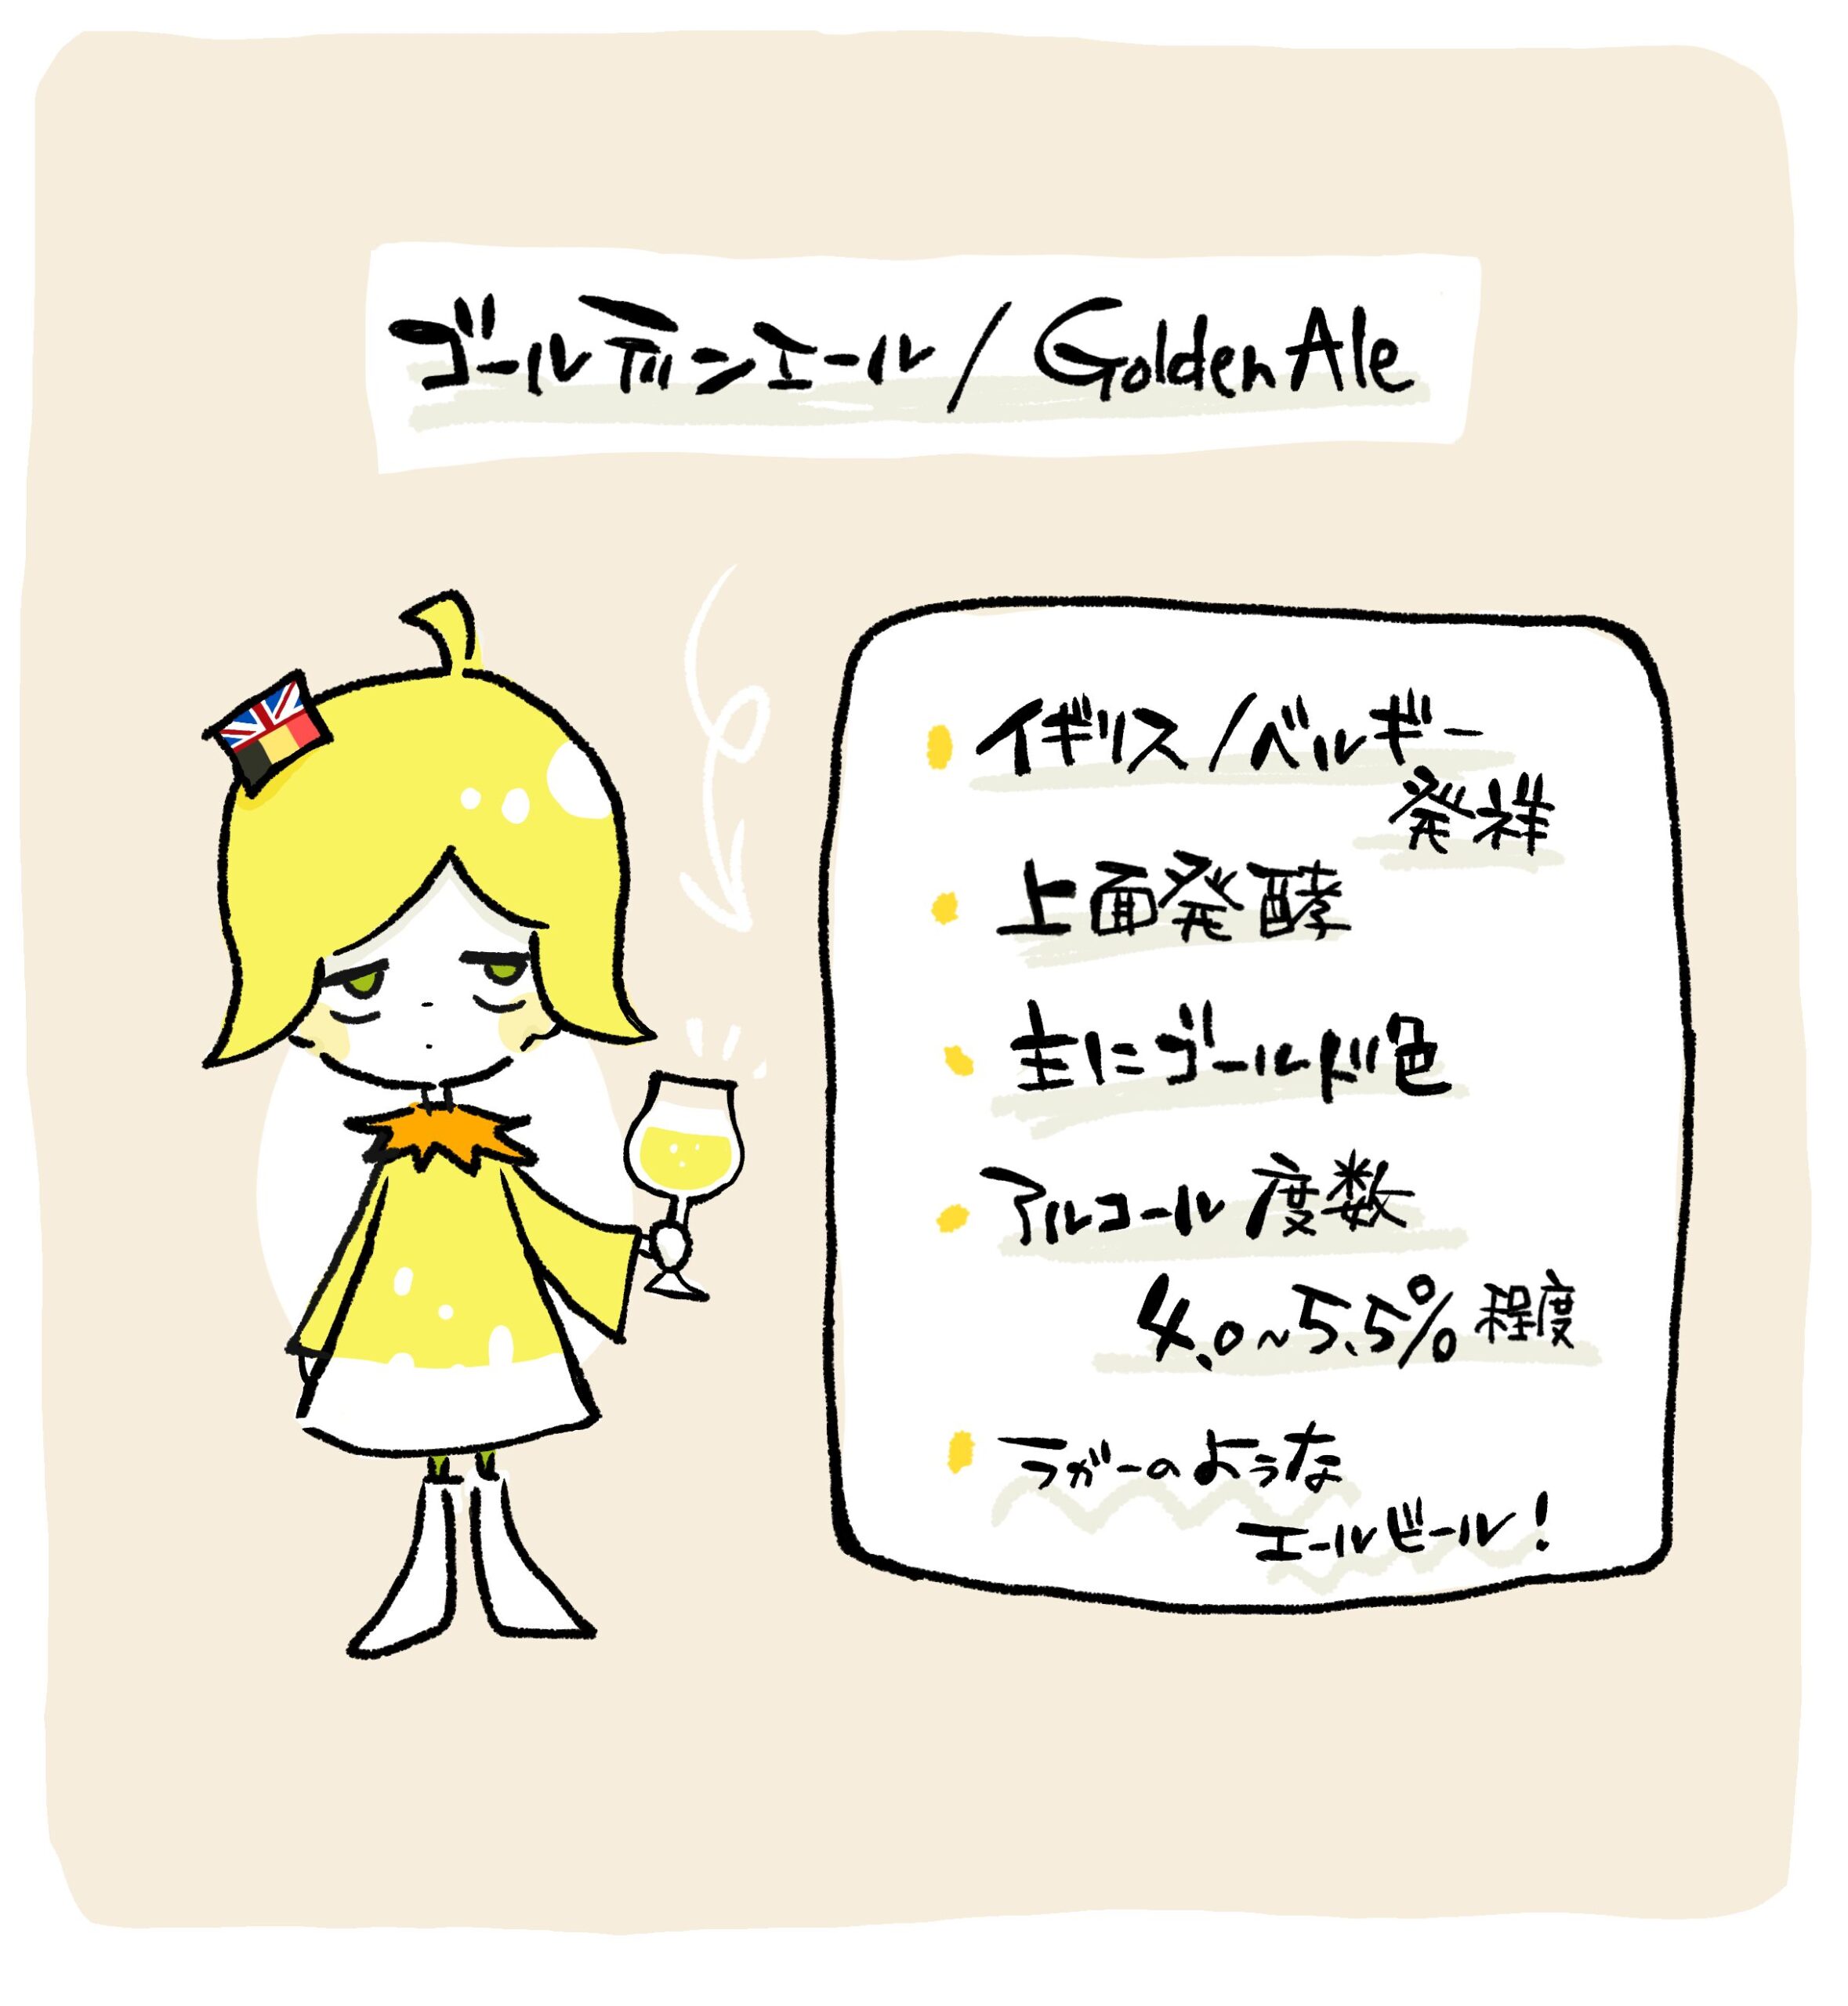 ゴールデンエール/Golden Ale
イギリス/ベルギー
発祥
上面発酵
主にゴールド色
アルコール度数
4.0~5.5%程度
ラガーのような
エールビール!